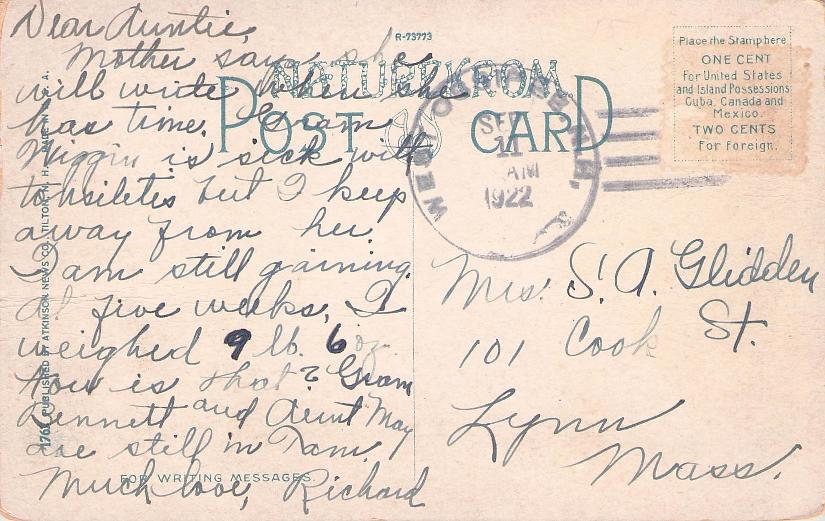 Dear Auntie,
Mother says she
will write when she
has time. Gram
Wiggin is sick with
tonsiletes but I keep
away from her.
I am still gaining.
At five weeks, I
weighed 9 lb. 6 oz.
How is that? Gram
Bennett and Aunt May
are still in Tam.
Much love, Richard
R-73773
NATURECROM
POST CARD
SEP
11
AM
1922
WEST
N.H.
Place the Stamp here
ONE CENT
For United States
and Island Possessions
Cuba, Canada and
Mexico.
TWO CENTS
For Foreign.
Mrs. S. A. Glidden
101 Cook St.
Lynn
Mass.
PUBLISHED BY ATKINSON NEWS CO., TILTON, N. H. MADE IN U. S. A.
FOR WRITING MESSAGES.